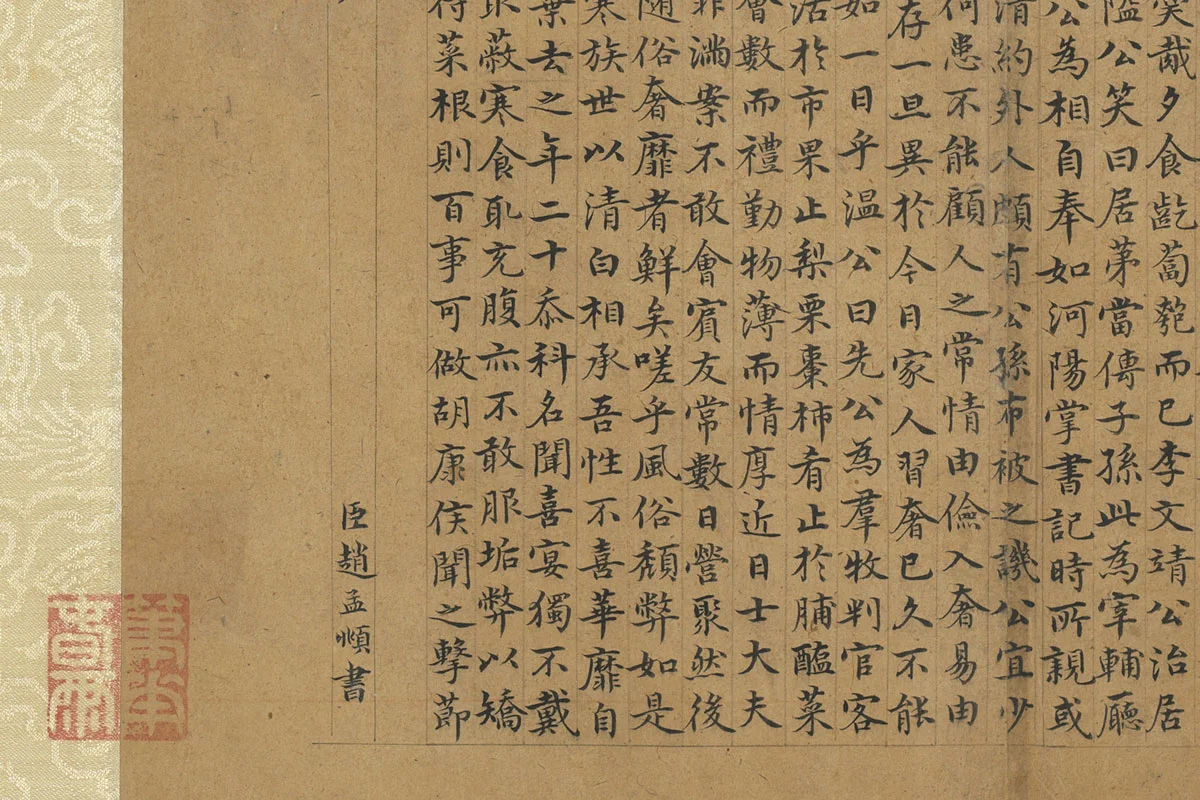 哉夕食而已李文靖公治居
隘公笑曰居第當傳子孫此為宰輔廳
公為相自奉如河陽掌書記時所親或
清約外人頗有公孫布被之譏公宜少
何患不能顧人之常情由儉入奢易由
存一旦異於今日家人習奢已久不能
如一日乎温公曰先公為羣牧判官客
沽於市果止梨栗棗柿肴止於脯醢菜
會數而禮勤物薄而情厚近日士大夫
非滿案不敢會賓友常數日營聚然後
隨俗奢靡者鮮矣嗟乎風俗頹弊如是
寒族世以清白相承吾性不喜華靡自
棄去之年二十忝科名聞喜宴獨不戴
蔽寒食取充腹亦不敢服垢弊以矯
菜根則百事可做胡康侯聞之擊節
臣趙孟頫書